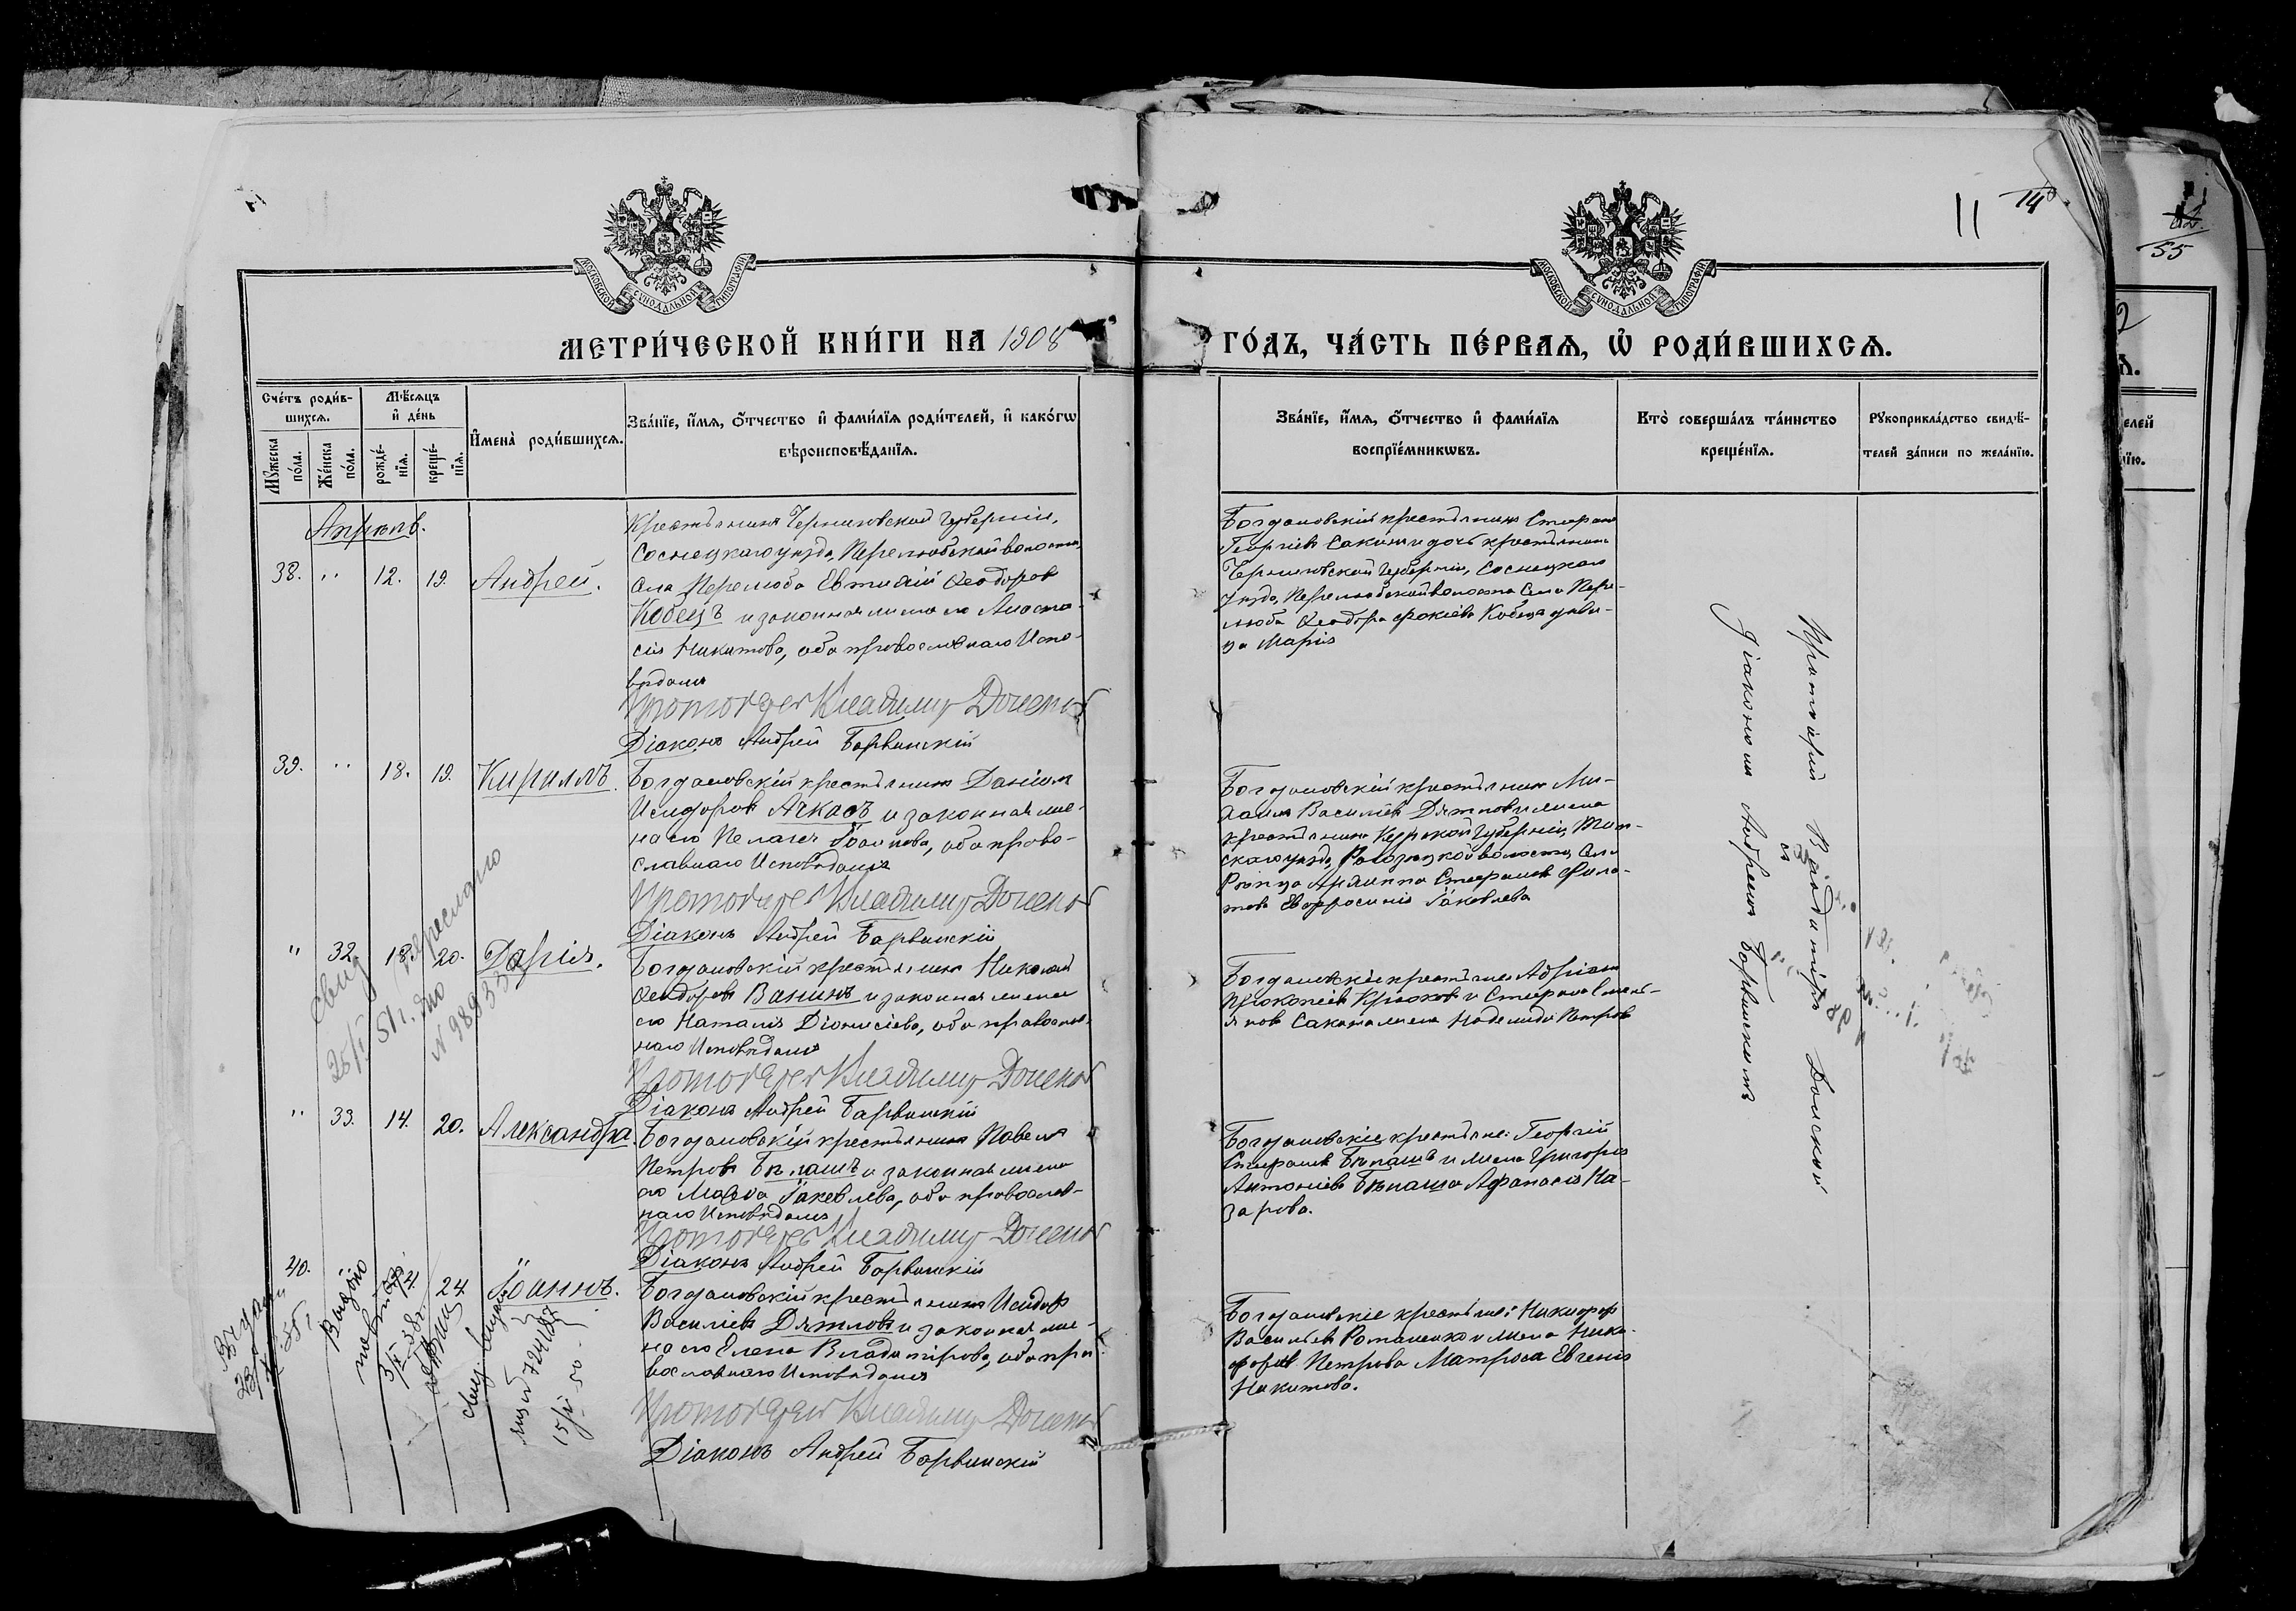 11
14
55
МОСКОВСКОЙ СѴНОДАЛЬНОЙ ТИПОГРАФІИ
МОСКОВСКОЙ СѴНОДАЛЬНОЙ ТИПОГРАФІИ
МЕТРИ́ЧЕСКОЙ КНИ́ГИ НА 1908
ГО́ДЪ, ЧА́СТЬ ПЕ́РВАѦ, Ѡ҆ РОДИ́ВШИХСѦ.
Сче́тъ роди́в-
шихсѧ.
Мꙋ́жеска
по́ла.
Же́нска
по́ла.
Мѣ́сѧцъ
и҆ де́нь
рожде́-
нїѧ.
креще́-
нїѧ.
И҆мена̀ роди́вшихсѧ.
Зва́нїе, и҆́мѧ, ѻ҆́тчество и҆ фами́лїѧ роди́телей, и҆ како́гѡ
вѣроисповѣ́данїѧ.
Зва́нїе, и҆́мѧ, ѻ҆́тчество и҆ фами́лїѧ
воспрїе́мникѡвъ.
Кто̀ соверша́лъ та́инство
креще́нїѧ.
Рꙋкоприкла́дство свидѣ́-
телей за́писи по жела́нїю.
Апрѣль.
38. " 12. 19. Андрей.
Крестьянинъ Черниговской губерніи,
Сосницкаго уѣзда, Перелюбской волости,
села Перелюба Евтихій Ѳеодоров
Кобецъ и законная жена его Анаста-
сія Никитова, оба православнаго испо-
вѣданія
Протоіерей Владимир Донской
Діаконъ Андрей Барвинскій
Богдановскій крестьянинъ Стефанъ
Георгіевъ Сакунъ и дочь крестьянина
Черниговской губерніи, Сосницкаго
уѣзда, Перелюбской волости села Пере-
люба Ѳеодора Фокіева Кобеца дѣви-
ца Марія
39. " 18. 19. Кириллъ.
Богдановскій крестьянинъ Даніилъ
Исидоровъ Ачкасъ и законная же-
на его Пелагея Іоаннова, оба право-
славнаго исповѣданія
Протоіерей Владимир Донской
Діаконъ Андрей Барвинскій
Богдановскій крестьянинъ Ми-
хаилъ Васильевъ Дятловъ и жена
крестьянина Курской губерніи, Тим-
скаго уѣзда, волости, села
Архиппа Стефанова Фила-
това Евфросинія Іаковлева
" 32. 18. 20. Дарія.
Богдановскій крестьянинъ Николай
Ѳеодоровъ Ванинъ и законная жена
его Наталія Діонисіева, оба православ-
наго исповѣданія
Протоіерей Владимир Донской
Діаконъ Андрей Барвинскій
Богдановскіе крестьяне: Адріанъ
Прокопіевъ Крюковъ и Стефана
Сакуна жена Надежда Петрова
" 33. 14. 20. Александра.
Богдановскій крестьянинъ Павелъ
Петровъ Бѣлашъ и законная жена
его Марѳа Іаковлева, оба православ-
наго исповѣданія
Протоіерей Владимир Донской
Діаконъ Андрей Барвинскій
Богдановскіе крестьяне: Георгій
Стефановъ Бѣлашъ и жена Григорія
Антоніева Бѣлаша Афанасія На-
зарова.
40. " 24 Іоаннъ.
Богдановскій крестьянинъ Исидор
Васильевъ Дятловъ и законная же-
на его Елена Владимірова, оба пра-
вославнаго исповѣданія
Протоіерей Владимир Донской
Діаконъ Андрей Барвинскій
Богдановскіе крестьяне: Никифор
Васильевъ Романенко и жена Ники-
фора Петрова Матроса Евгенія
Никитова.
Протоіерей Владиміръ Донской
съ
Діакономъ Андреемъ Барвинскимъ
Выдано
15/ 50